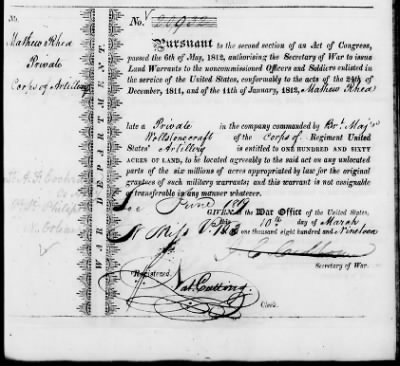 No.
Mathew Rhea
Private
Corps of Artillery
WAR DEPARTMENT
No. 20932
Pursuant to the second section of an Act of Congress,
passed the 6th of May, 1812, authorising the Secretary of War to issue
Land Warrants to the noncommissioned Officers and Soldiers enlisted in
the service of the United States, conformably to the acts of the 24th of
December, 1811, and of the 11th of January, 1812, Mathew Rhea
late a Private in the company commanded by Bt. Majr.
Wollstonecraft of the Corps of Regiment United
States' Artillery is entitled to ONE HUNDRED AND SIXTY
ACRES OF LAND, to be located agreeably to the said act on any unlocated
parts of the six millions of acres appropriated by law for the original
grantees of such military warrants; and this warrant is not assignable
or transferable in any manner whatever.
June 1819
GIVEN at the War Office of the United States,
this 10th day of March
one thousand eight hundred and Nineteen
J. C. Calhoun
Secretary of War.
Registered.
Nat. Cutting
Clerk.